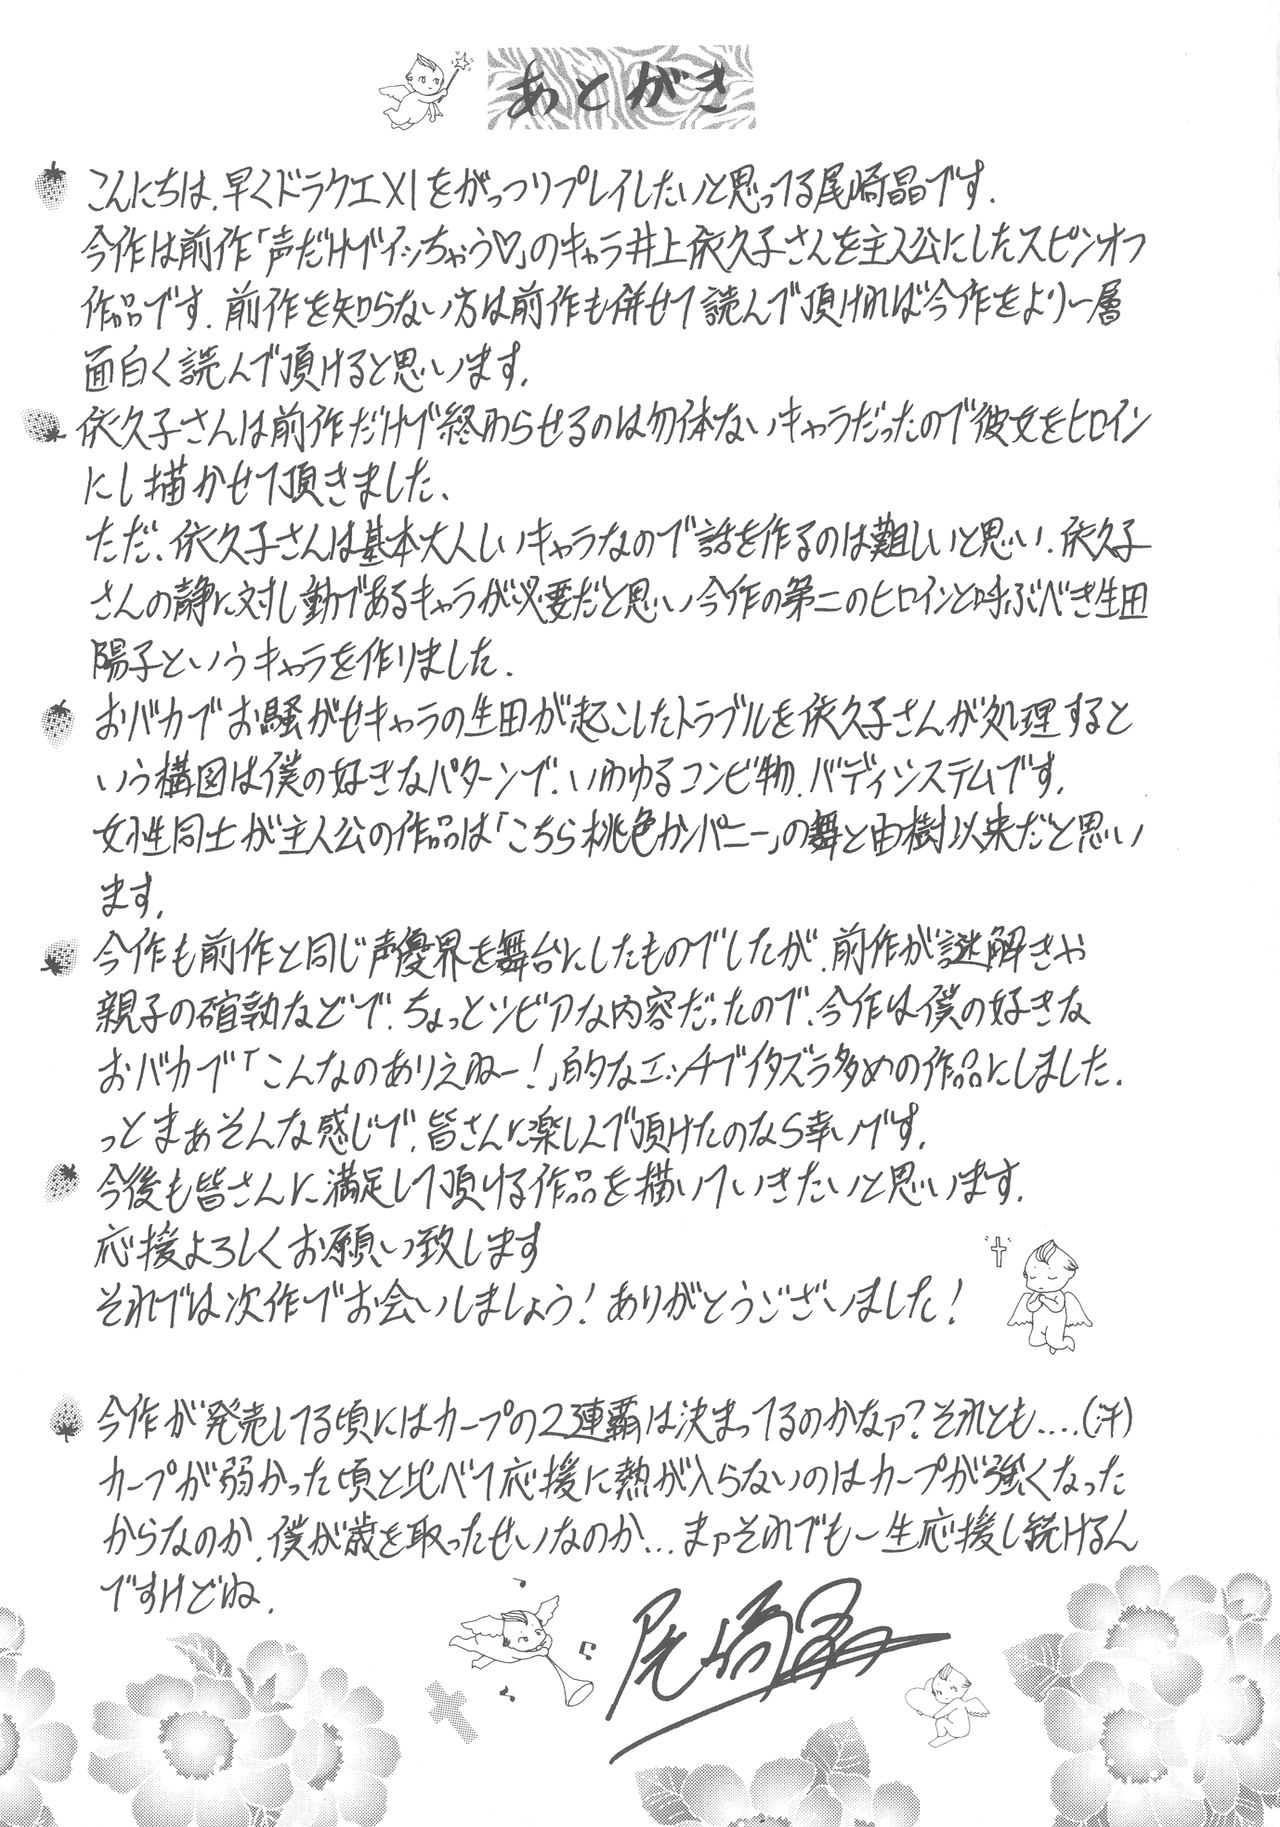 あとがき
こんにちは、早くドラクエXIをがっつりプレイしたいと思ってる尾崎晶です.
今作は前作「声だけでイッちゃう♡」のキャラ井上依久子さんを主人公にしたスピンオフ
作品です.前作を知らない方は前作も併せて読んで頂ければ今作をより一層
面白く読んで頂けると思います.
依久子さんは前作だけで終わらせるのは勿体ないキャラだったので彼女をヒロイン
にし描かせて頂きました、
ただ、依久子さんは基本大人しいキャラなので話を作るのは難しいと思い、依久子
さんの静に対し動であるキャラが必要だと思い今作の第二のヒロインと呼ぶべき生田
陽子というキャラを作りました.
おバカでお騒がせキャラの生田が起こしたトラブルを依久子さんが処理すると
いう構図は僕の好きなパターンで、いわゆるコンビ物、バディシステムです.
女性同士が主人公の作品は「こちら桃色カンパニー」の舞と由樹以来だと思い
ます.
今作も前作と同じ声優界を舞台にしたものでしたが、前作が謎解きや
親子の確執などで、ちょっとシビアな内容だったので、今作は僕の好きな
おバカで「こんなのありえねー!」的なエッチでイタズラ多めの作品にしました.
っとまぁそんな感じで、皆さんに楽しんで頂けたのなら幸いです.
今後も皆さんに満足して頂ける作品を描いていきたいと思います.
応援よろしくお願い致します
それでは次作でお会いしましょう!ありがとうございました!
今作が発売してる頃にはカープの2連覇は決まってるのかなァ?それとも....(汗)
カープが弱かった頃と比べて応援に熱が入らないのはカープが強くなった
からなのか、僕が歳を取ったせいなのか...まァそれでも一生応援し続けるん
ですけどね.
尾崎晶